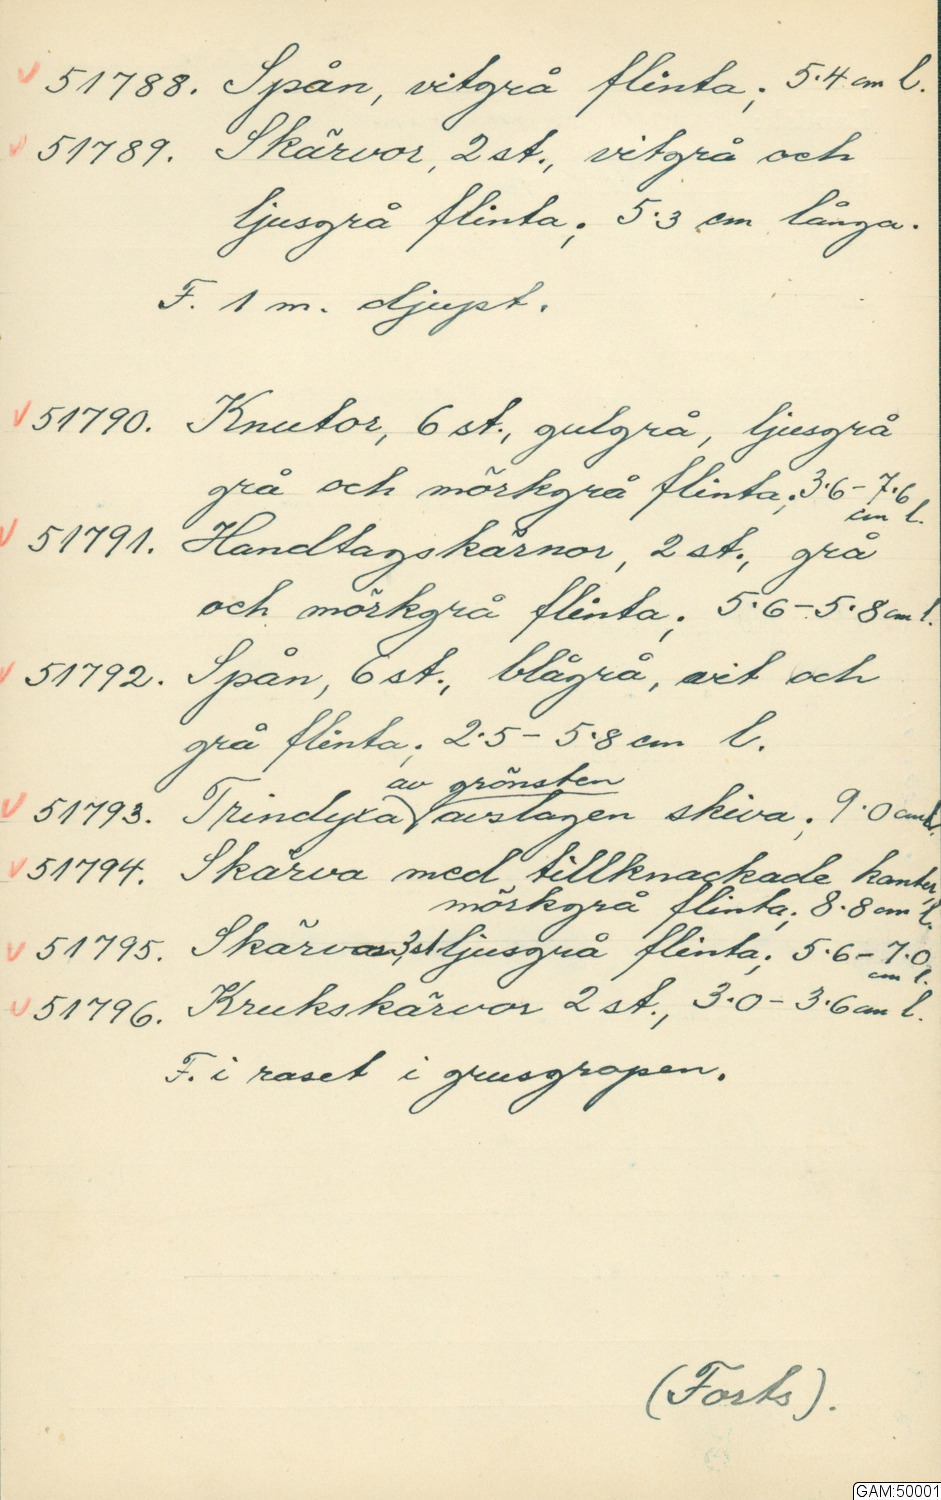 v 51788. Spån, vitgrå flinta; 5.4 cm l.
v 51789. Skärvor, 2 st., vitgrå och
ljusgrå flinta; 5.3 cm långa.
F. 1 m. djupt.
v 51790. Knutor, 6 st., gulgrå, ljusgrå
grå och mörkgrå flinta; 3.6 – 7.6
cm l.
v 51791. Handtagskärnor, 2 st., grå
och mörkgrå flinta; 5.6 – 5.8 cm l.
v 51792. Spån, 6 st., blågrå, vit och
grå flinta; 2.5 – 5.8 cm l.
av grönsten
v 51793. Trindyxa avslagen skiva; 9.0 cm l.
v 51794. Skärva med tillknackade kanter,
mörkgrå flinta; 8.8 cm l.
v 51795. Skärvor 3 st ljusgrå flinta; 5.6 – 7.0
cm l.
v 51796. Krukskärvor 2 st., 3.0 – 3.6 cm l.
F. i raset i grusgropen.
(Forts).
GAM:50001